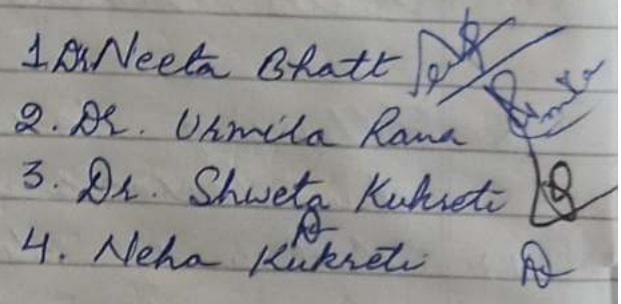 1. Dr Neeta Bhatt
2. Dr. Urmila Rana
3. Dr. Shweta Kukreti
4. Neha Kukreti